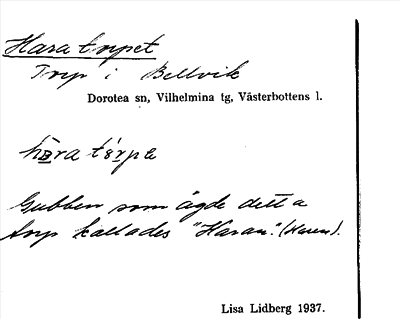 Haratorpet
Torp i Bellvik
Dorotea sn, Vilhelmina tg, Västerbottens l.
Gubben som ägde detta
torp kallades "Haran". (Haren).
Lisa Lidberg 1937.